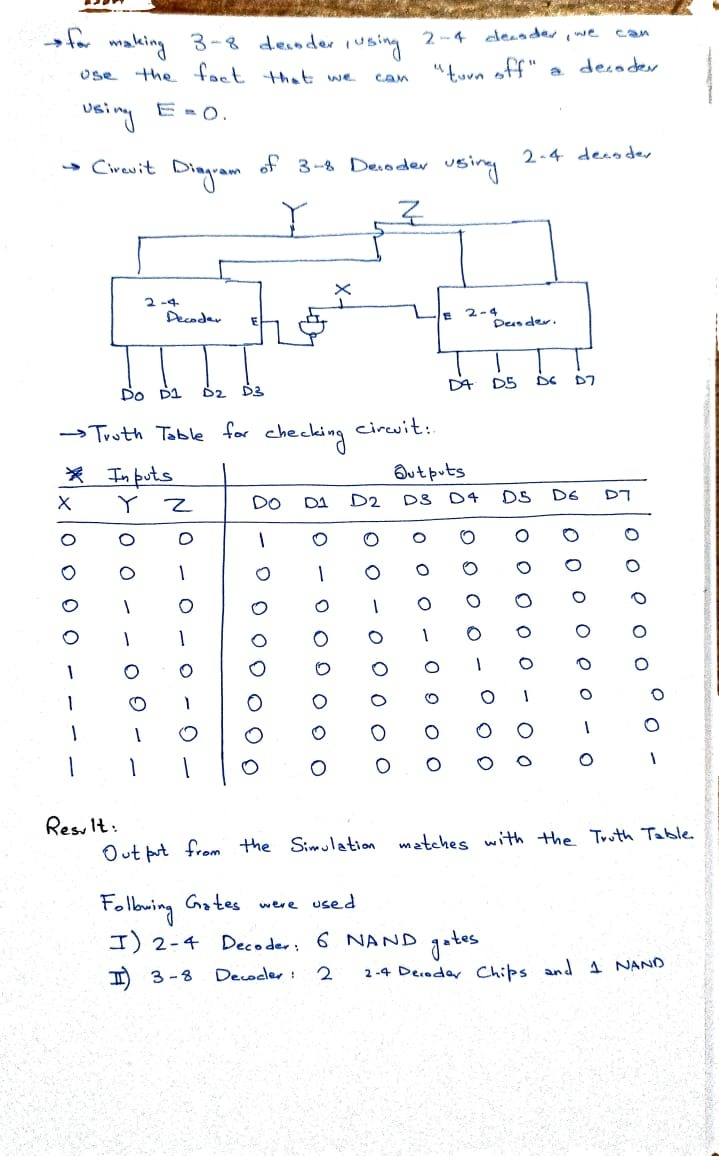 → for making 3-8 decoder, using 2-4 decoder, we can
use the fact that we can "turn off" a decoder
using E = 0.
→ Circuit Diagram of 3-8 Decoder using 2-4 decoder
Y Z
X
2-4
Decoder
E
E 2-4
Decoder.
D0 D1 D2 D3
D4 D5 D6 D7
→ Truth Table for checking circuit:
Inputs Outputs
X Y Z D0 D1 D2 D3 D4 D5 D6 D7
0 0 0 1 0 0 0 0 0 0 0
0 0 1 0 1 0 0 0 0 0 0
0 1 0 0 0 1 0 0 0 0 0
0 1 1 0 0 0 1 0 0 0 0
1 0 0 0 0 0 0 1 0 0 0
1 0 1 0 0 0 0 0 1 0 0
1 1 0 0 0 0 0 0 0 1 0
1 1 1 0 0 0 0 0 0 0 1
Result:
Output from the Simulation matches with the Truth Table.
Following Gates were used
I) 2-4 Decoder: 6 NAND gates
II) 3-8 Decoder: 2 2-4 Decoder Chips and 1 NAND